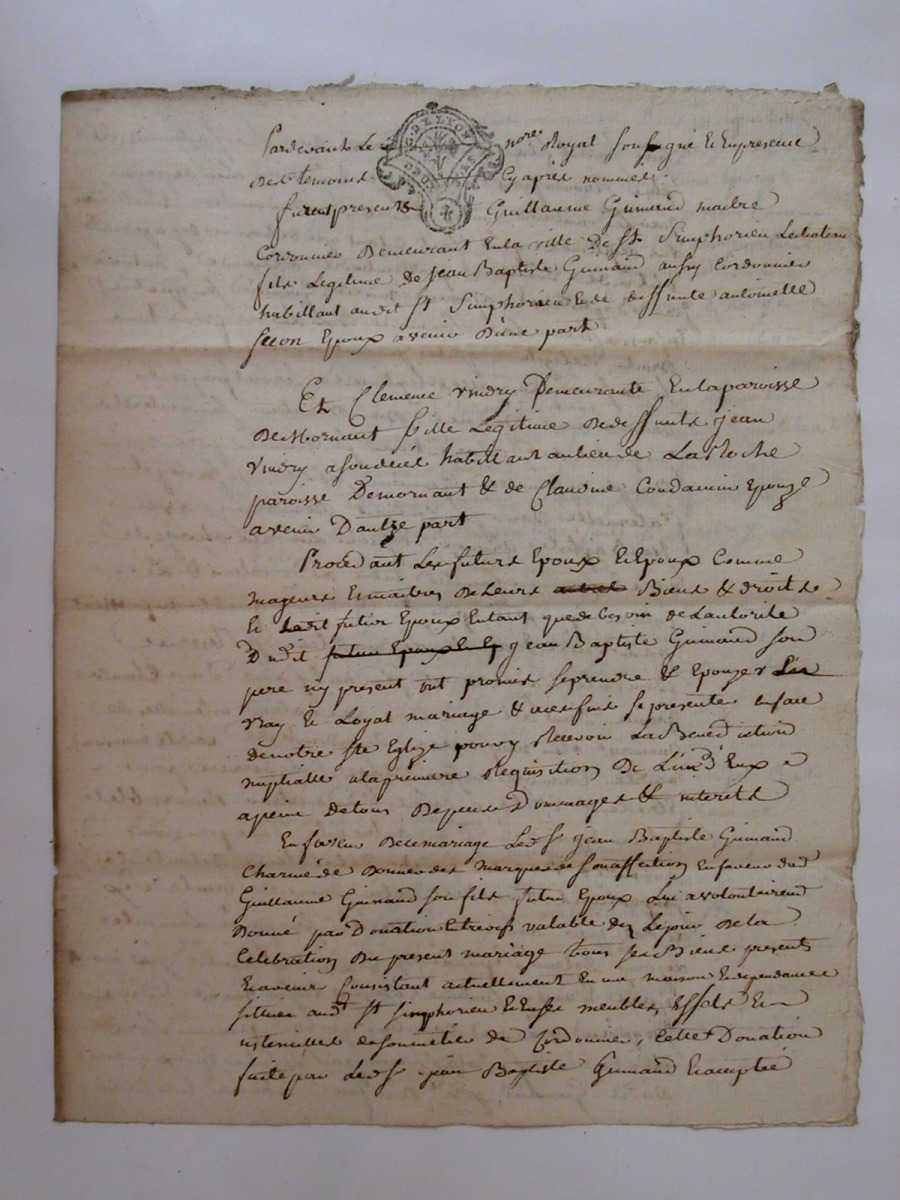 Pardevant Le nore Royal soussigné Et En presence
des temoins Cy après nommés.
G. DE LYON
furent presents Guillaume Guinand maitre
Cordonnier Demeurant En la ville De St Simphorien Lechateau
fils Legitime De Jean Baptiste Guinand aussy Cordonnier
habillant audit St Simphorien Et de deffunte antoinette
seeon Epoux avenir D'une part
Et Clemence Vindry Demeurante En la paroisse
De Mornant fille Legitime De deffunts jean
Vindry habillant au lieu de La Roche
paroisse De mornant & de Claudine Condamin Epouze
avenir D'autre part
Procedant Les futurs Epoux Et Epouze Comme
majeurs Et maitres De Leurs Biens & droits
Et Ledit futur Epoux Entant que de besoin de Lautorité
Dudit futur Epoux Et Ey jean Baptiste Guinand son
pere icy present ont promis se prendre & Epouzer En
vray Et Loyal mariage & a ces fins se presenter En face
de notre ste Eglise pour y Recevoir La Benediction
nuptialle a la premiere Requisition De L'un d'Eux a
apeine de tous Depens Dommages & interets
En faveur De ce mariage Led. Sr jean Baptiste Guinand
Charmé de Donner des Marques de son affection En faveur dud
Guillaume Guinand son fils futur Epoux Lui a volontairemt
Donné par Donation Entre vifs valable des Le jour De la
Celebration Du present mariage tous ses Biens presents
Et avenir Consistant actuellement En une maison Et dependances
sittuée audt St Simphorien Et En ses meubles, Effets Et
ustencilles de son metier de Cordonnier, Cette Donation
faite par Led. Sr jean Baptiste Guinand Et acceptée